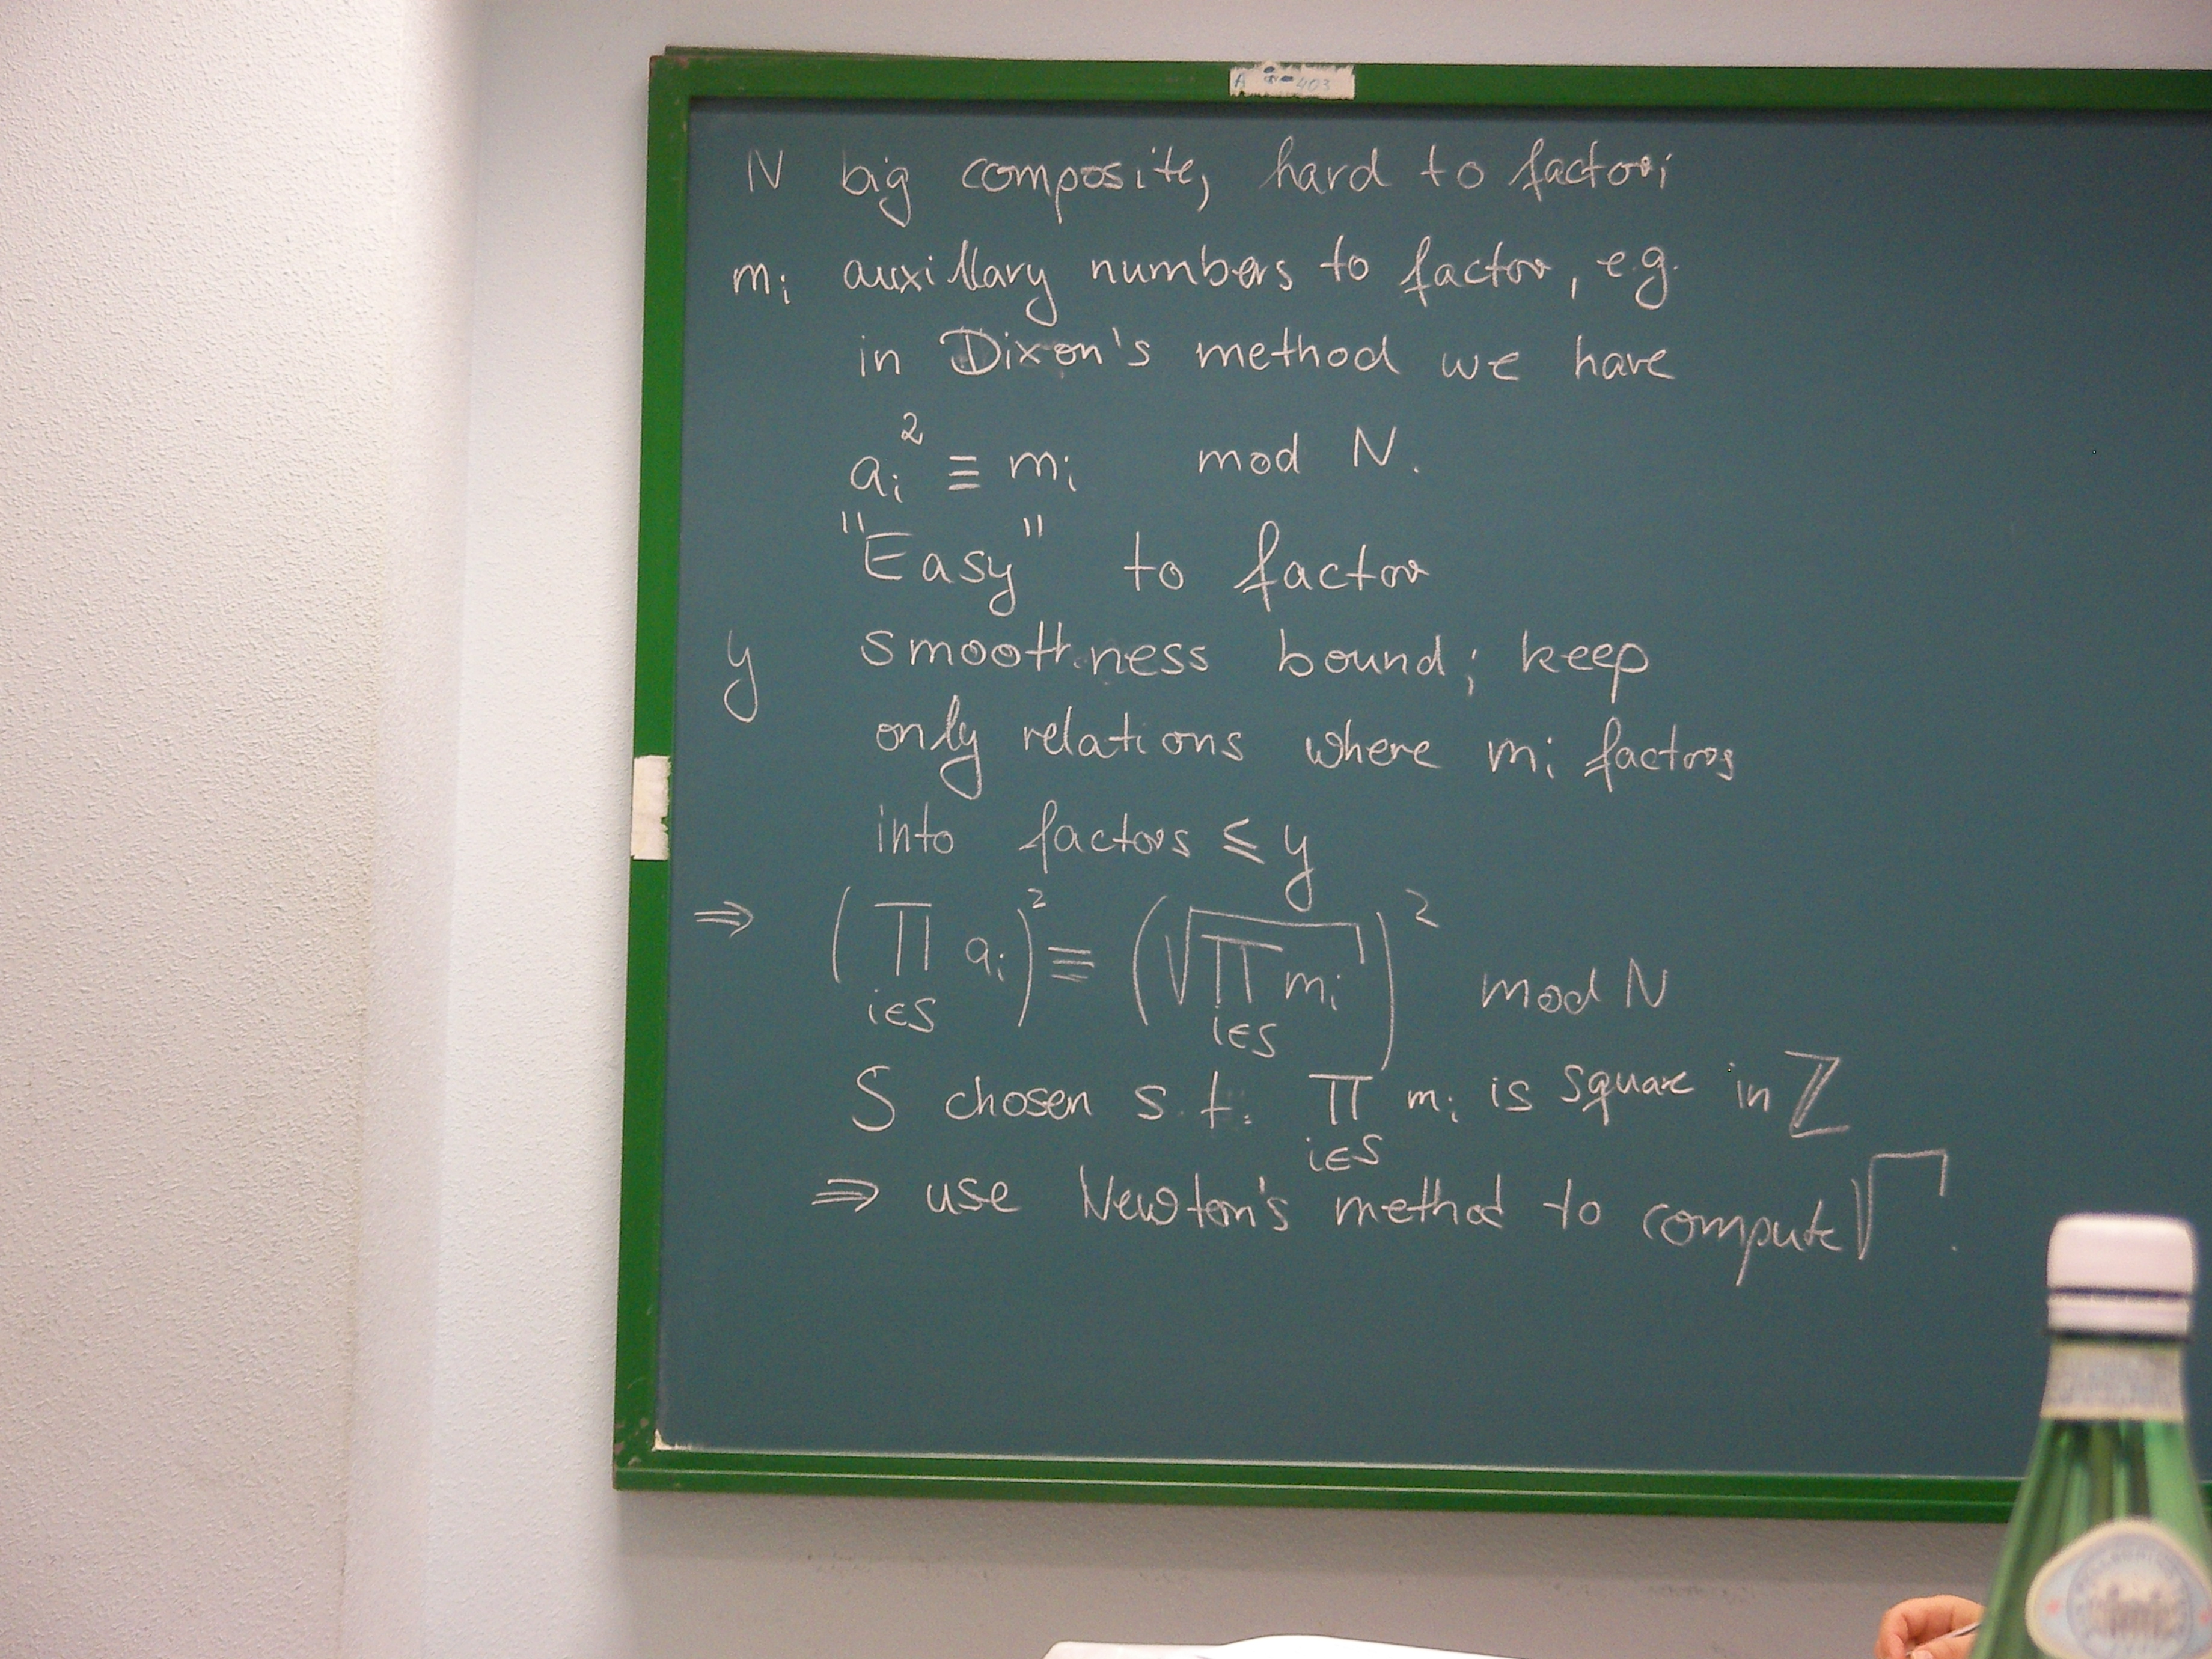 A 403
N big composite, hard to factor;
mᵢ auxillary numbers to factor, e.g.
in Dixon's method we have
aᵢ² ≡ mᵢ mod N.
"Easy" to factor
y smoothness bound; keep
only relations where mᵢ factors
into factors ≤ y
⇒ (∏_{i∈S} aᵢ)² ≡ (√(∏_{i∈S} mᵢ))² mod N
S chosen s.t. ∏_{i∈S} mᵢ is square in ℤ
⇒ use Newton's method to compute √ .